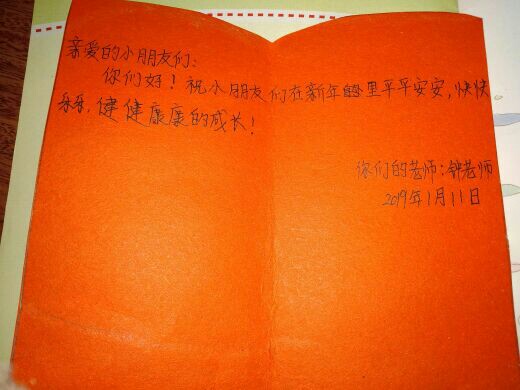 亲爱的小朋友们:
你们好!祝小朋友们在新年里平平安安,快快
乐乐,健健康康的成长!
你们的老师:钟老师
2019年1月11日